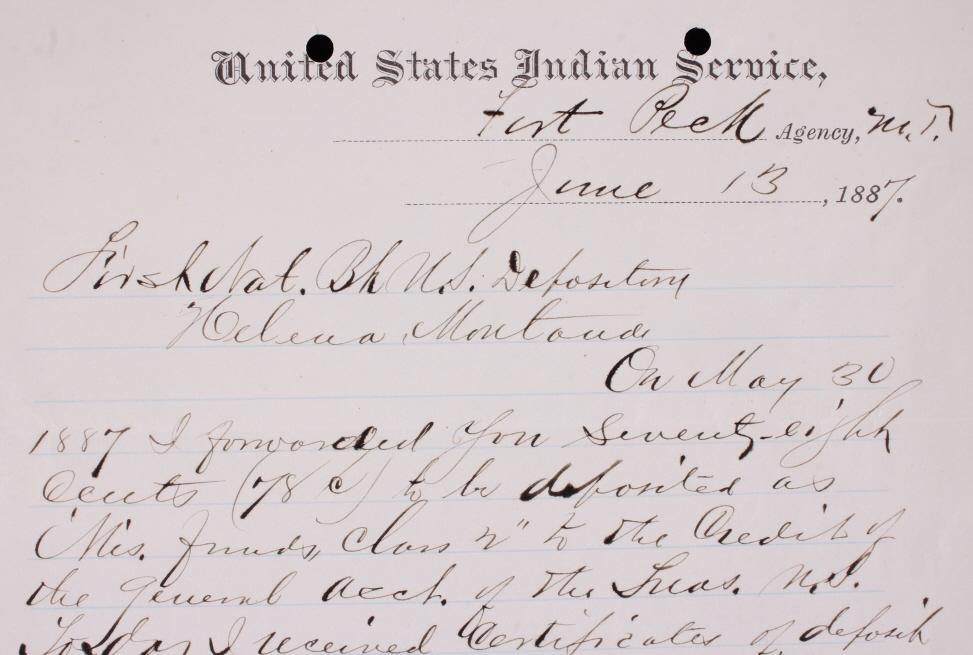 United States Indian Service,
Fort Peck Agency, M.T.
June 13, 1887.
First Nat. Bk U.S. Depository
Helena Montana
On May 30
1887 I forwarded you Seventy-eight
Cents (78 c) to be deposited as
"Mis. funds, Class 2" to the Credit of
the General acct. of the Treas. U.S.
Today I received Certificates of deposit